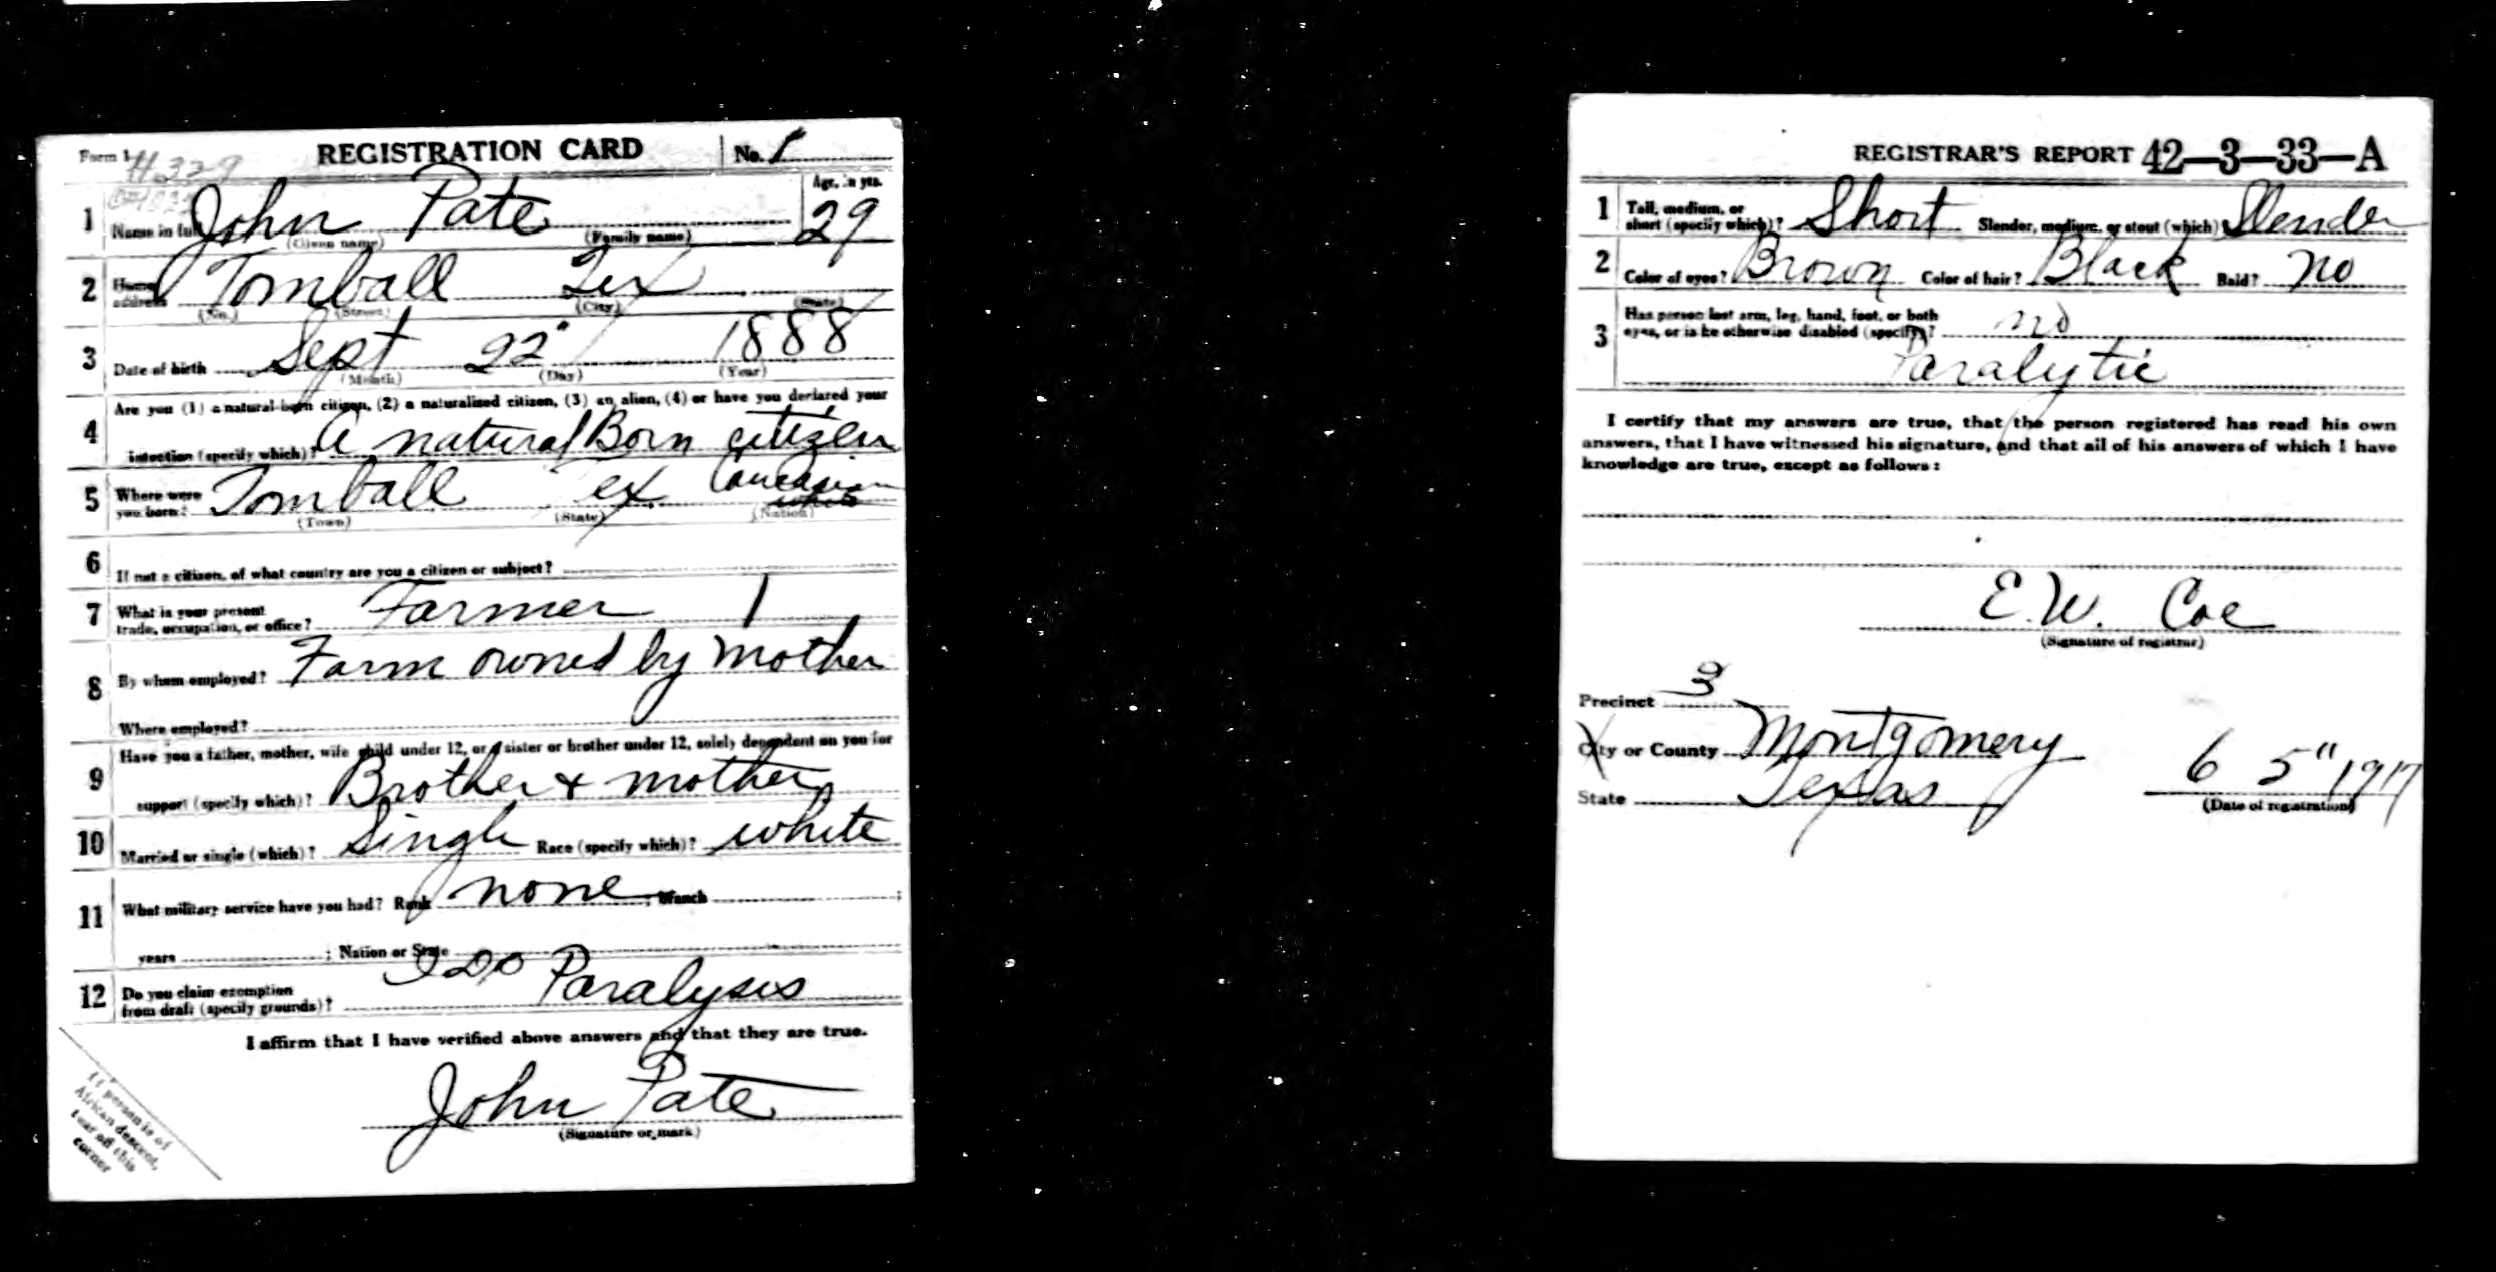 Form 1 H329 REGISTRATION CARD No. 1
1 Name in full John Pate Age, in yrs. 29
(Given name) (Family name)
2 Home address Tomball Tex
(No.) (Street) (City) (State)
3 Date of birth Sept 22" 1888
(Month) (Day) (Year)
4 Are you (1) a natural-born citizen, (2) a naturalized citizen, (3) an alien, (4) or have you declared your
intention (specify which)? A natural Born citizen
5 Where were you born? Tomball Tex Caucasian white
(Town) (State) (Nation)
6 If not a citizen, of what country are you a citizen or subject?
7 What is your present
trade, occupation, or office? Farmer 1
8 By whom employed? Farm owned by mother
Where employed?
9 Have you a father, mother, wife child under 12, or a sister or brother under 12, solely dependent on you for
support (specify which)? Brother & mother
10 Married or single (which)? Single Race (specify which)? white
11 What military service have you had? Rank none ; Branch ;
years ; Nation or State
12 Do you claim exemption
from draft (specify grounds)? I do Paralysis
I affirm that I have verified above answers and that they are true.
John Pate
(Signature or mark)
If person is of
African descent,
tear off this
corner
REGISTRAR'S REPORT 42—3—33—A
1 Tall, medium, or
short (specify which)? Short Slender, medium, or stout (which)? Slender
2 Color of eyes? Brown Color of hair? Black Bald? no
3 Has person lost arm, leg, hand, foot, or both
eyes, or is he otherwise disabled (specify)? no
Paralytic
I certify that my answers are true, that the person registered has read his own
answers, that I have witnessed his signature, and that all of his answers of which I have
knowledge are true, except as follows:
E.W. Coe
(Signature of registrar)
Precinct 3
City or County Montgomery
State Texas 6 5" 1917
(Date of registration)